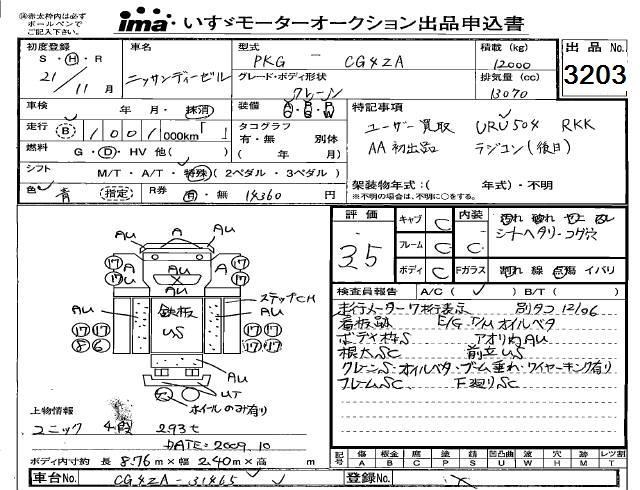 ※赤太枠内は必ず
ボールペンで
ご記入下さい。
ima・いすゞモーターオークション出品申込書
初度登録 車名 型式 積載 (kg) 出品 No.
S・H・R ニッサンディーゼル PKG - CG4ZA 12000 3203
21/11月 グレード・ボディ形状 排気量 (cc)
クレーン 13070
車検 年・月・抹消 装備 A・P・P C G W 特記事項
走行 (B) 1001 000km「 」 タコグラフ ユーザー買取 URU504 RKK
有・無 別体 AA初出品 ラジコン(後日)
燃料 G・D・HV 他( ) ( 年 月)
シフト M/T・A/T・特殊( 2ペダル・3ペダル)
架装物年式:( 年式)・不明
※不明の場合は、不明に○をする。
色 青 (指定) R券 有・無 14360 円
評価 3.5 キャブ C 内装 C
シートヘタリ・コゲ穴
フレーム C
ボディ C Fガラス 割れ 線 点傷 イバリ
検査員報告 A/C( ✓ )・B/T( )
走行メーター7桁表示 別タコ12/06
看板跡 E/G T/M オイルベタ
ボデー枠S アオリ内AU
根太SC 前立US
クレーンS・オイルベタ・ブーム垂れ・ワイヤーキンク有り
フレームSC 下廻りSC
AU A AU
17 A A 17
17 AU 17
AU
ステップCM
鉄板
US
17 17 17 17
8 6 17 17
AU AU
AU
UT
ホイールのみ有り
上物情報
ユニック 4段 293t
DATE:2009.10
ボディ内寸約 長 8.76m×幅 2.40m×高 m
記号 傷 A 板金 B 腐 C 塗 P 請 S 凹凸曲 U 波 W 穴 H 外 M レツ割 T
車台No. CG4ZA-31465 登録No.